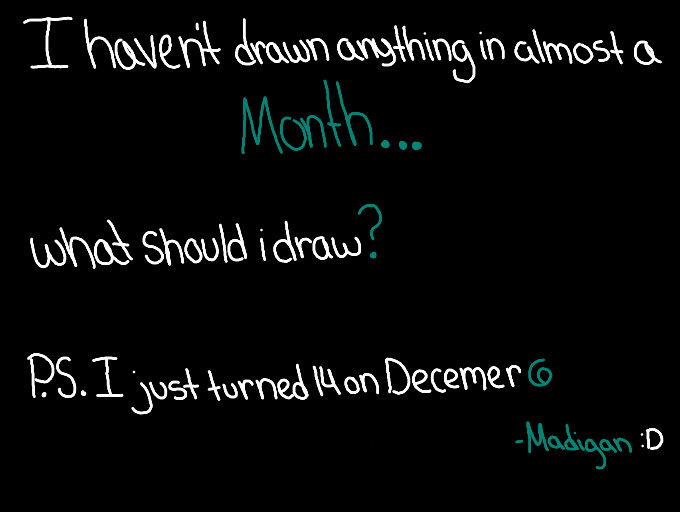 I haven't drawn anything in almost a
Month...
what should i draw?
P.S. I just turned 14 on Decemer 6
-Madigan :D